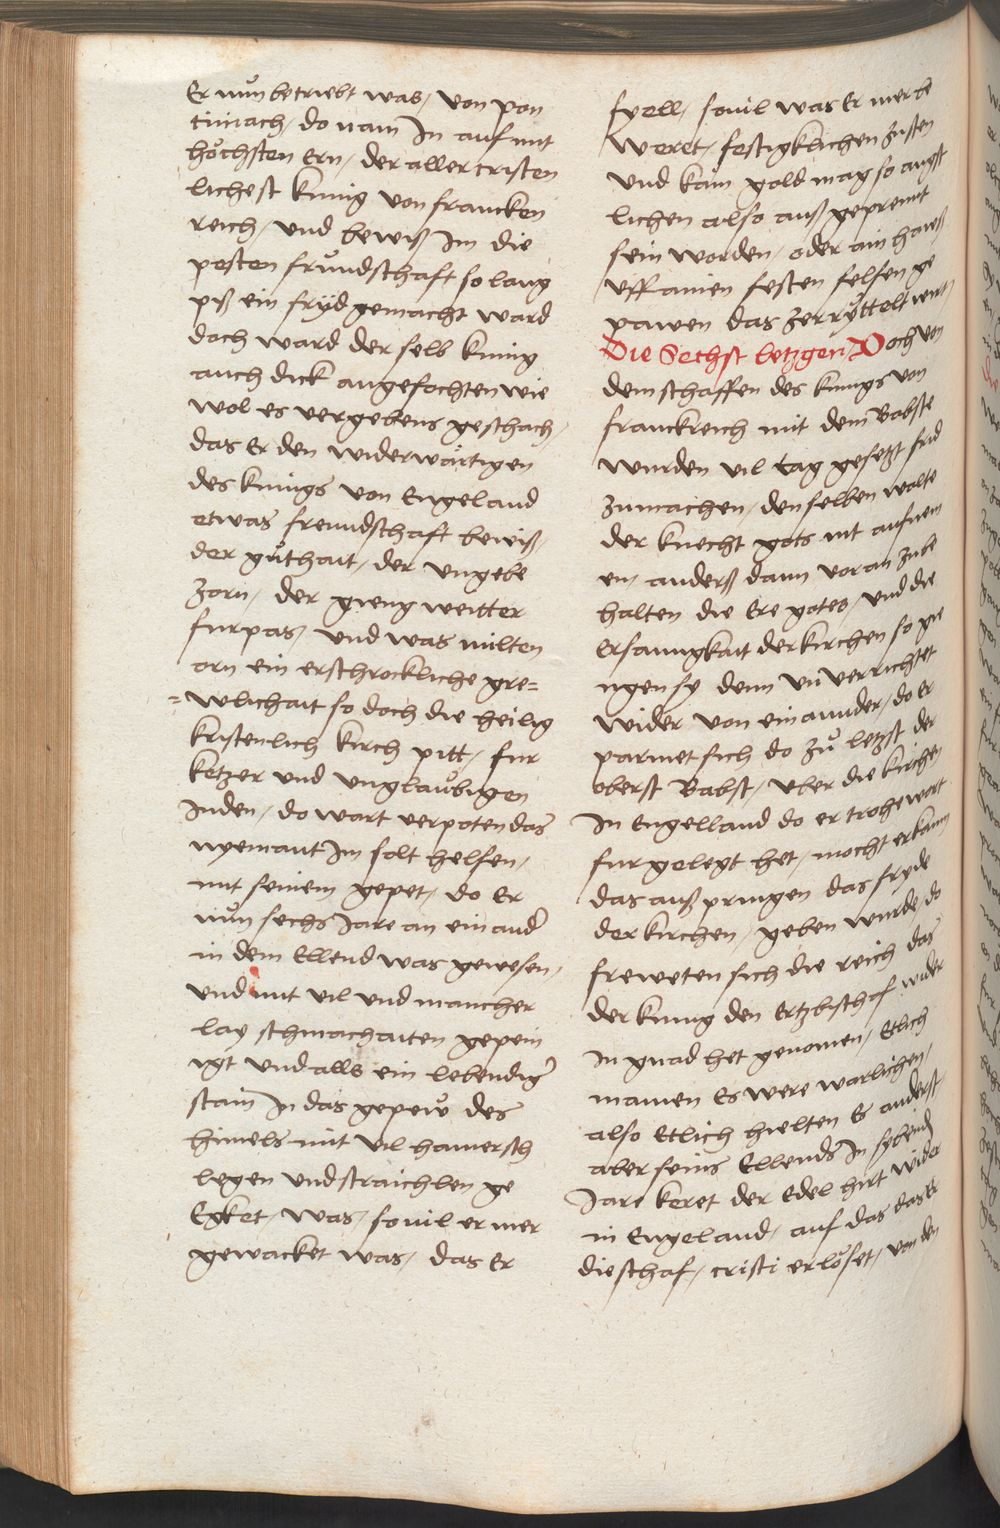 Er nŭn betriebt was / von pon
tiniach / do nam In auf mit
höchsten Ern / der aller cristen
lichest kunig von francken
reich / vnd bewiß Im die
pesten frŭndschaft so lang
piß ein fryd gemacht ward
doch ward der selb kunig
auch dick angefochten wie
wol es vergebens geschach /
das Er den widerwärtigen
des kunigs von Engeland
etwas freundschaft bewiß /
der gŭthait / der vngebe
zorn / der gieng weitter
furpas / vnd was milten
orn ein erschrockliche gre=
=wlichait so doch die heilig
kristenlich kirch pitt / fur
ketzer vnd vnglaŭbigen
Juden / do wart verpoten das
nyemant Im solt helfen /
mit seinem gepet / do Er
nŭn sechs Jare an ein and
in dem Ellend was gewesen /
vnd mit vil vnd mancher
lay schmachaiten gepein
igt vnd alls ein lebendig
stain In das gepew des
himels mit vil hamersch
legen vnd straichlen ge
Egket / was / souil er mer
gewacket was / das Er
fyell / souil was Er mer be
weret / festigklichen zusten
vnd kain gold mag so angst
lichen also auß geprennt
sein worden / oder ain hawß
vff ainen festen felsen ge
pawen das zerryttelt wirt
Die Sechst letzgen Doch von
dem schaffen des kunigs von
franckreich mit dem Babste
wurden vil tag gesetzt frid
zumachen / den selben wolte
der knecht gots nit aufnem
en / anderß dann voran zube
halten die Ere gotes / vnd die
Ersamigkait der kirchen so gie
ngen sy denn vnuerrichtet
wider von einannder / do Er
parmet sich do zŭ letzst der
oberst Babst / vber die kirchen
In Engelland do er trohe wort
fur gelegt het / mocht er kaum
das auß pringen das fryde
der kirchen / geben wurde / do
freweten sich die reich das
der kunig den Ertzbischof wider
In gnad het genomen / Etlich
mainen Es were warlichen /
also Etlich hielten Es anderst /
aber seins Ellends In sybend
Jare keret der Edel hirt wider
in Engeland / auf das das Er
die schaf / cristi erlöset / von den